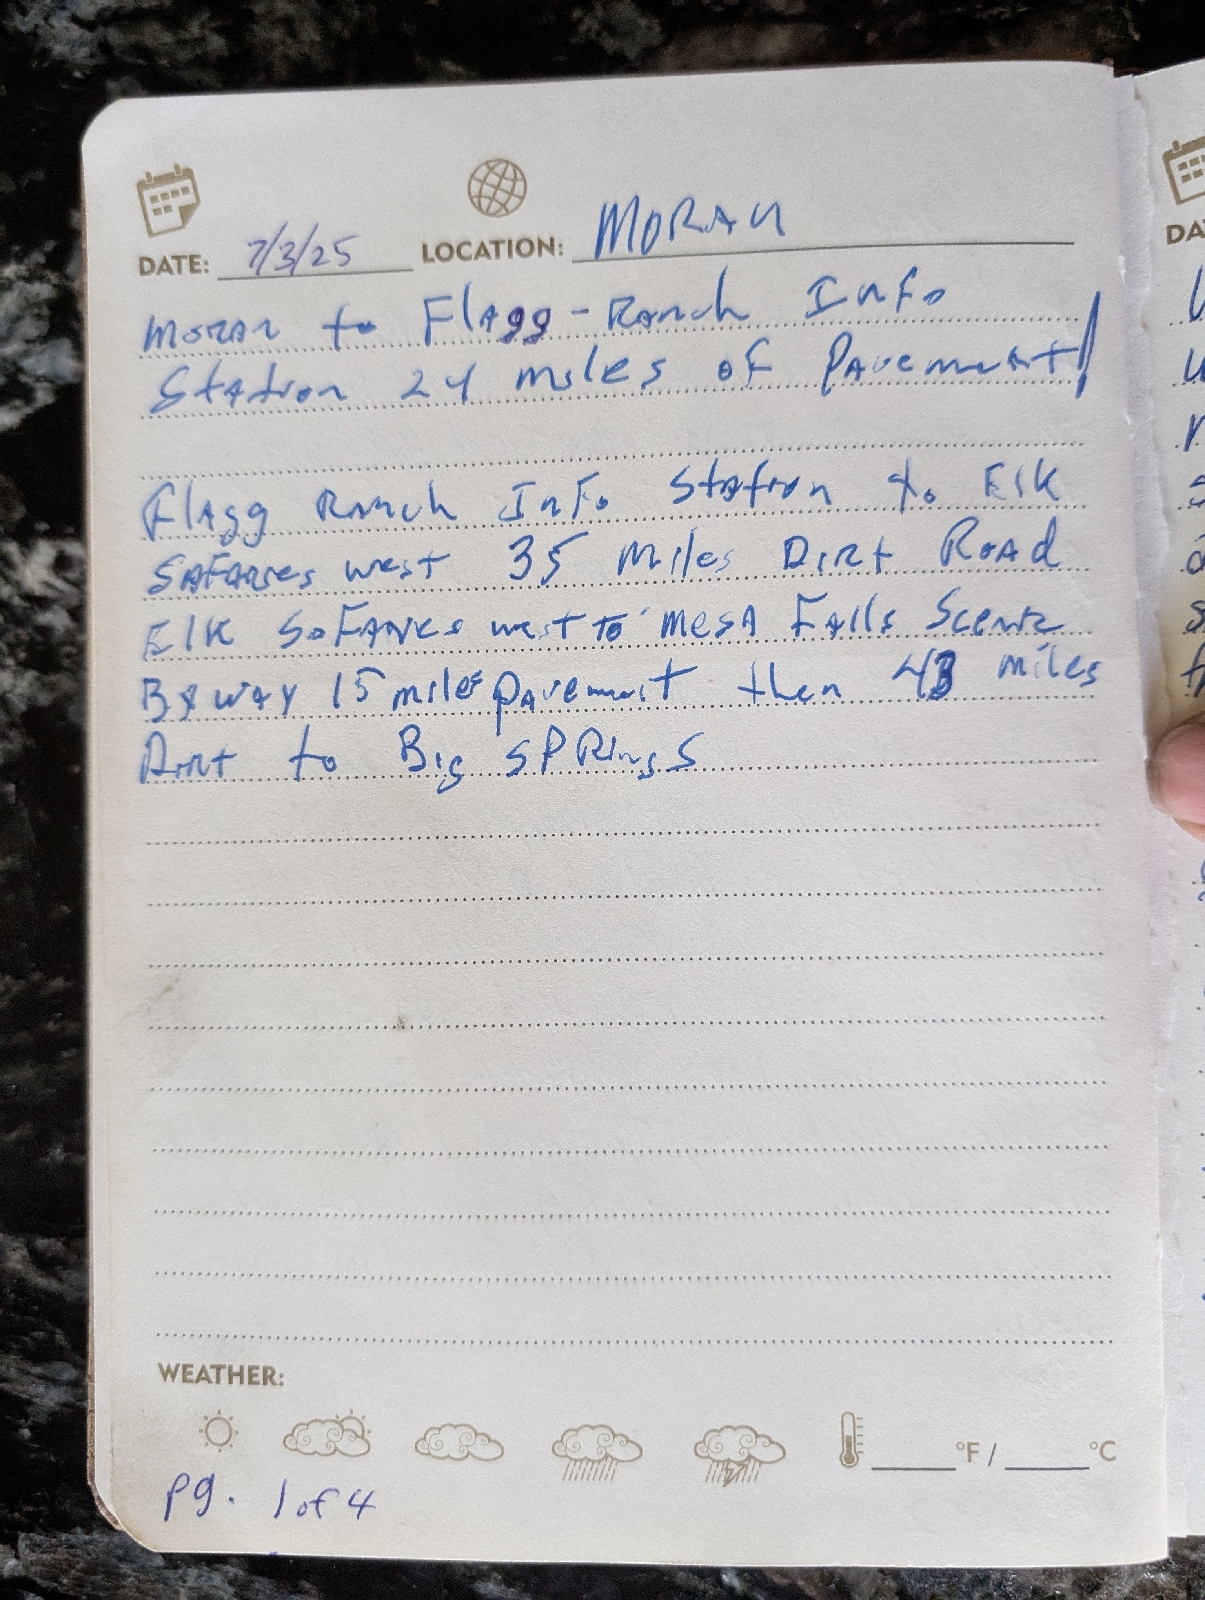 DATE: 7/3/25 LOCATION: MORAN
MORAN to Flagg-Ranch Info
Station 24 miles of Pavement!
Flagg Ranch Info Station to Elk
SAFARIES west 35 Miles Dirt Road
Elk SAFARIES west to MESA Falls Scenic
Byway 15 miles pavement then 43 miles
Dirt to Big SPRings
WEATHER:
°F / °C
pg. 1 of 4
DA